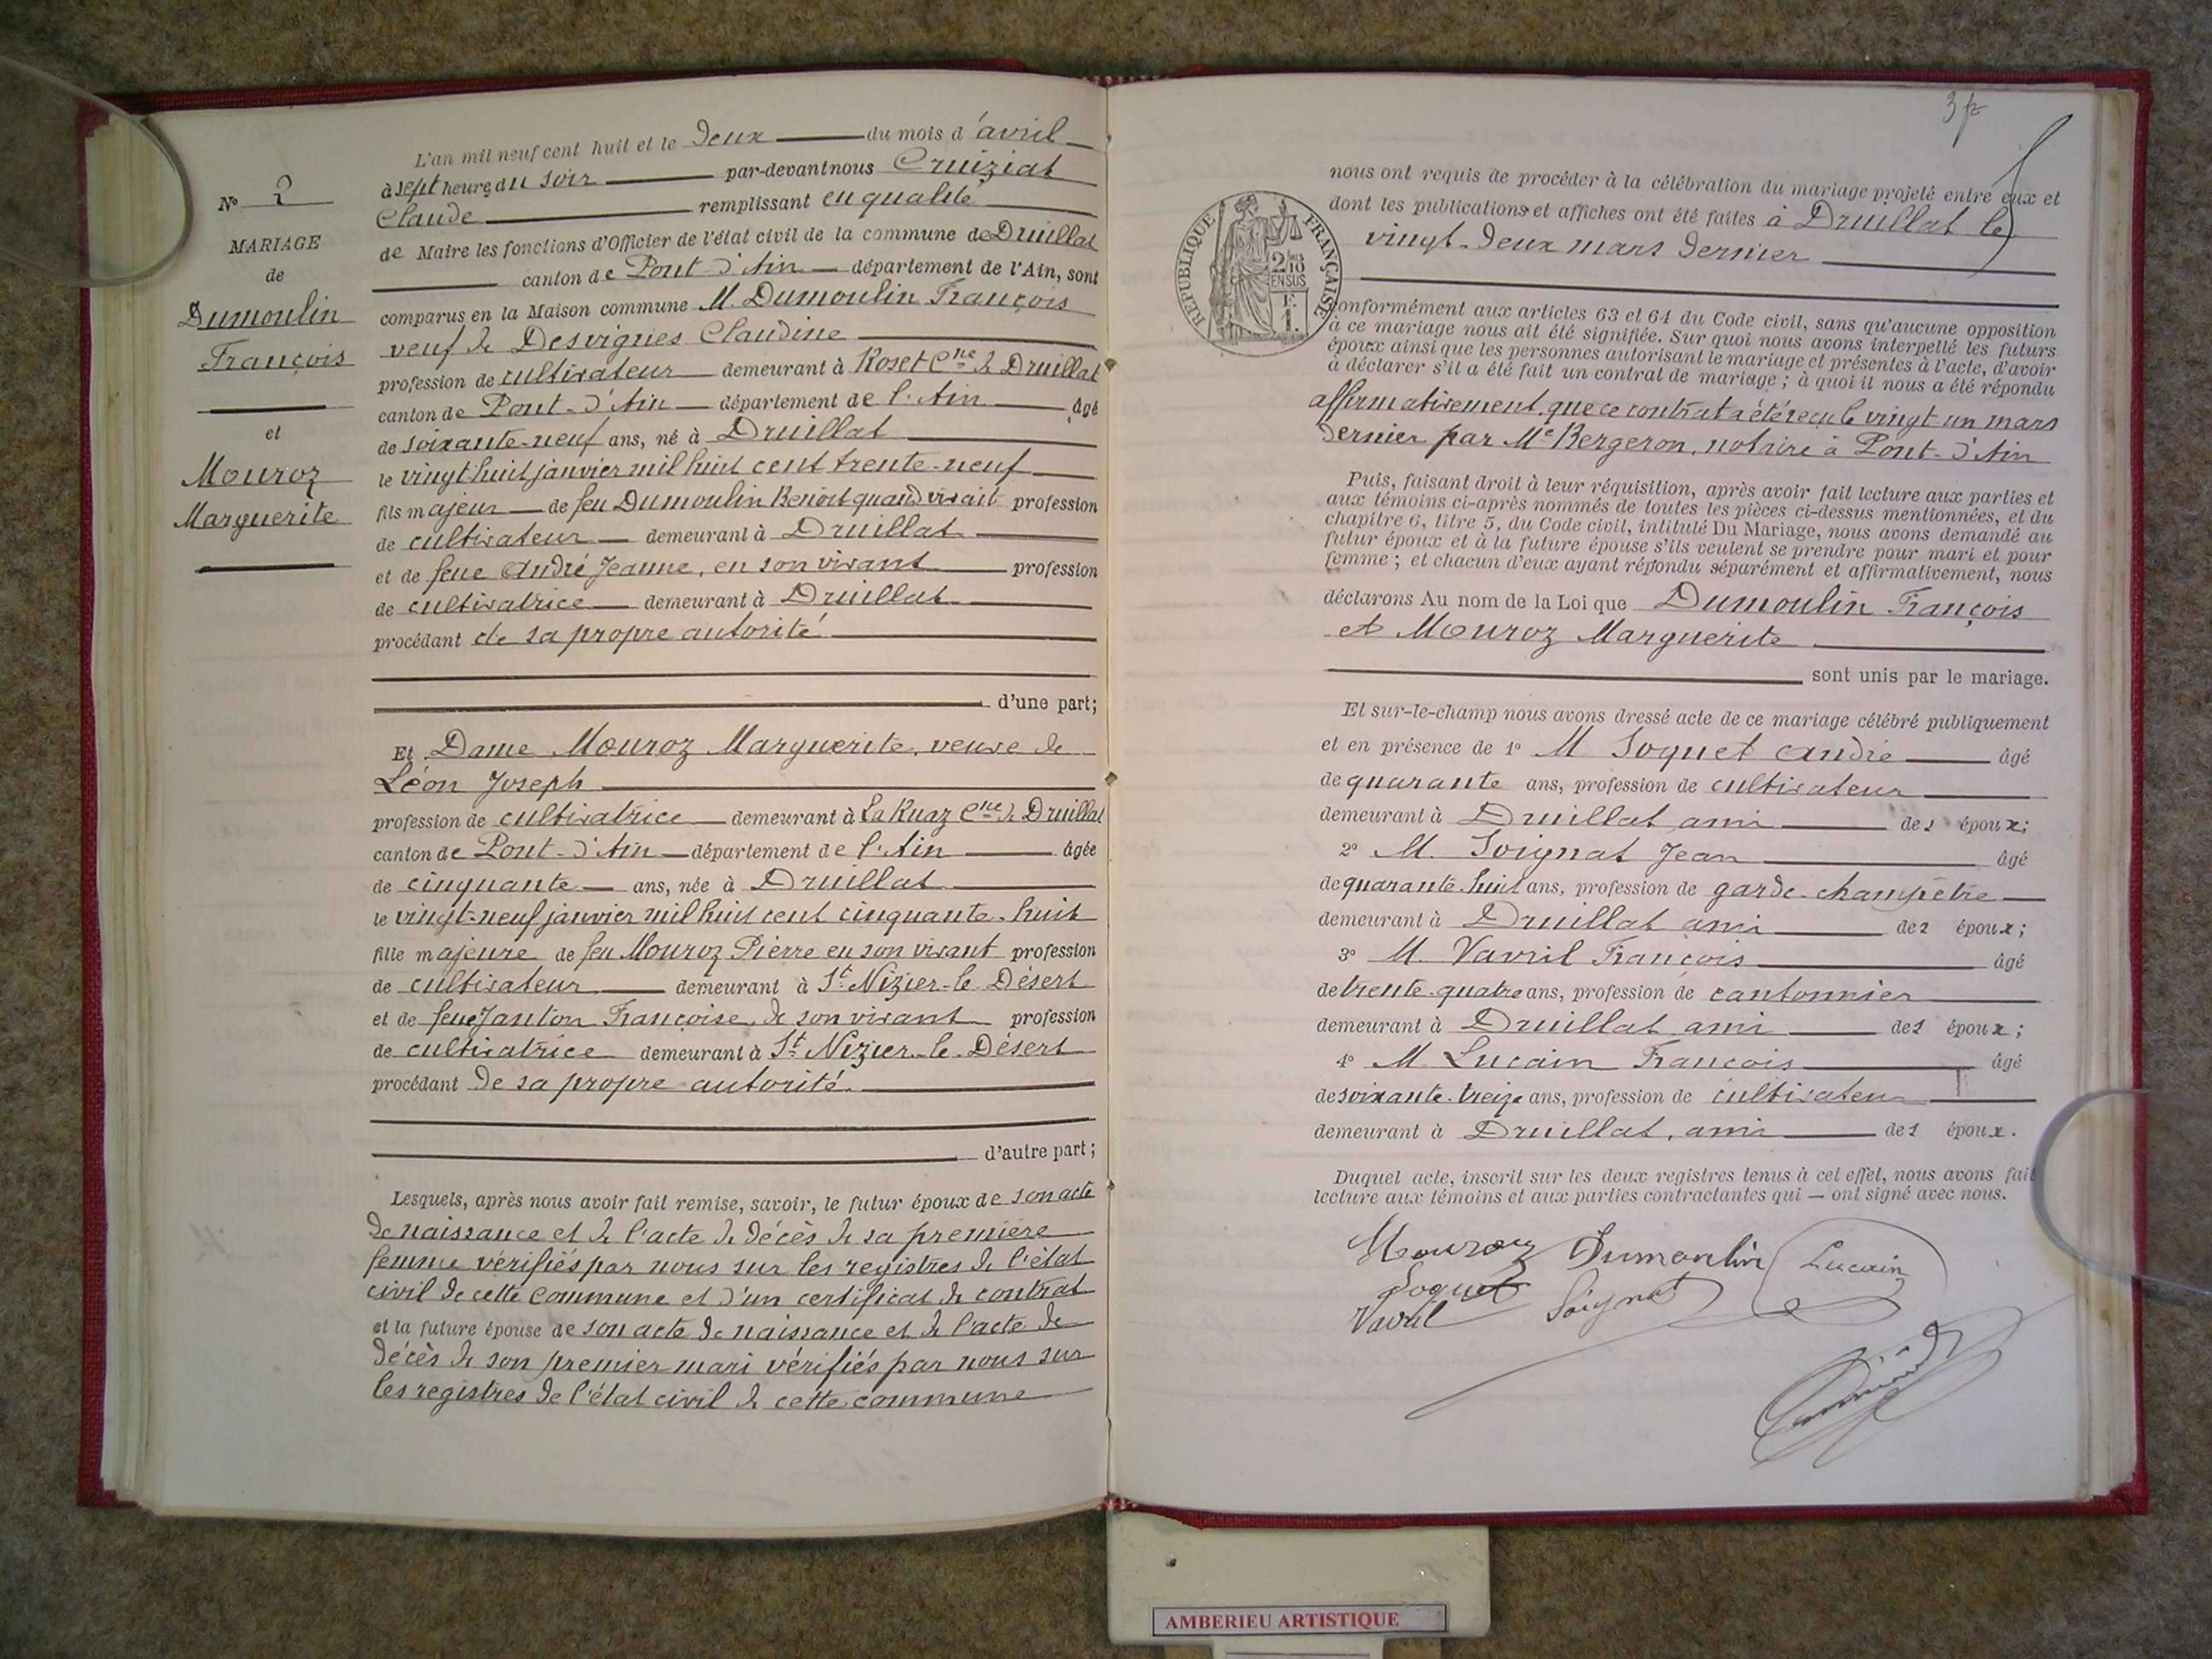 N° 2
MARIAGE
de
Dumoulin
François
et
Mouroz
Marguerite
L'an mil neuf cent huit et le deux du mois d'avril
à sept heures du soir par-devant nous Cruiziat
Claude remplissant en qualité
de Maire les fonctions d'Officier de l'état civil de la commune de Druillat
canton de Pont d'Ain département de l'Ain, sont
comparus en la Maison commune M. Dumoulin François
veuf de Desvignes Claudine
profession de cultivateur demeurant à Roset Cne de Druillat
canton de Pont-d'Ain département de l'Ain âgé
de soixante-neuf ans, né à Druillat
le vingt huit janvier mil huit cent trente-neuf
fils majeur de feu Dumoulin Benoit quand vivait profession
de cultivateur demeurant à Druillat
et de feue André Jeanne, en son vivant profession
de cultivatrice demeurant à Druillat
procédant de sa propre autorité
d'une part;
Et Dame Mouroz Marguerite, veuve de
Léon Joseph
profession de cultivatrice demeurant à La Ruaz Cne de Druillat
canton de Pont-d'Ain département de l'Ain âgée
de cinquante ans, née à Druillat
le vingt-neuf janvier mil huit cent cinquante-huit
fille majeure de feu Mouroz Pierre en son vivant profession
de cultivateur demeurant à St Nizier-le Désert
et de feue Janton Françoise, de son vivant profession
de cultivatrice demeurant à St Nizier-le-Désert
procédant de sa propre autorité.
d'autre part;
Lesquels, après nous avoir fait remise, savoir, le futur époux de son acte
de naissance et de l'acte de décès de sa première
femme vérifiés par nous sur les registres de l'état
civil de cette commune et d'un certificat de contrat
et la future épouse de son acte de naissance et de l'acte de
décès de son premier mari vérifiés par nous sur
les registres de l'état civil de cette commune
nous ont requis de procéder à la célébration du mariage projeté entre eux et
dont les publications et affiches ont été faites à Druillat le
vingt-deux mars dernier
RÉPUBLIQUE FRANÇAISE
2/10
EN SUS
F.
1.
conformément aux articles 63 et 64 du Code civil, sans qu'aucune opposition
à ce mariage nous ait été signifiée. Sur quoi nous avons interpellé les futurs
époux ainsi que les personnes autorisant le mariage et présentes à l'acte, d'avoir
à déclarer s'il a été fait un contrat de mariage ; à quoi il nous a été répondu
affirmativement, que ce contrat a été reçu le vingt-un mars
dernier par Me Bergeron, notaire à Pont-d'Ain
Puis, faisant droit à leur réquisition, après avoir fait lecture aux parties et
aux témoins ci-après nommés de toutes les pièces ci-dessus mentionnées, et du
chapitre 6, titre 5, du Code civil, intitulé Du Mariage, nous avons demandé au
futur époux et à la future épouse s'ils veulent se prendre pour mari et pour
femme ; et chacun d'eux ayant répondu séparément et affirmativement, nous
déclarons Au nom de la Loi que Dumoulin François
et Mouroz Marguerite
sont unis par le mariage.
Et sur-le-champ nous avons dressé acte de ce mariage célébré publiquement
et en présence de 1° M Soquet André âgé
de quarante ans, profession de cultivateur
demeurant à Druillat ami des époux;
2° M. Soignat Jean âgé
de quarante-huit ans, profession de garde-champêtre
demeurant à Druillat ami des époux;
3° M. Vavril François âgé
de trente-quatre ans, profession de cantonnier
demeurant à Druillat ami des époux;
4° M Lucain François âgé
de soixante-treize ans, profession de cultivateur
demeurant à Druillat, ami des époux.
Duquel acte, inscrit sur les deux registres tenus à cet effet, nous avons fait
lecture aux témoins et aux parties contractantes qui — ont signé avec nous.
Mouroz Dumoulin Lucain
Soquet
Vavril Soignat
AMBERIEU ARTISTIQUE